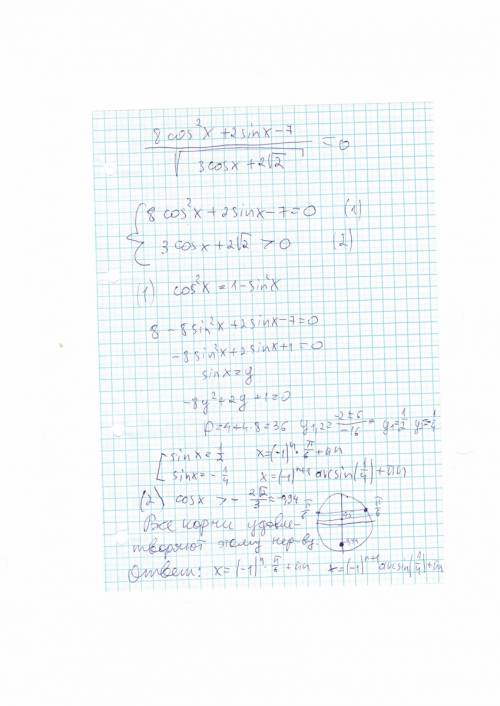 (8cos²x + 2sinx - 7) / √(3cosx + 2√2) = 0
{ 8cos²x + 2sinx - 7 = 0 (1)
3cosx + 2√2 > 0 (2)
(1) cos²x = 1 - sin²x
8 - 8sin²x + 2sinx - 7 = 0
-8sin²x + 2sinx + 1 = 0
sinx = y
-8y² + 2y + 1 = 0
D = 4 + 4·8 = 36 y₁,₂ = (-2 ± 6) / -16 = y₁ = 1/2 y₂ = -1/4
[ sinx = 1/2 x = (-1)ⁿ · π/6 + πn
sinx = -1/4 x = (-1)ⁿ⁺¹ arcsin(1/4) + πn
(2) cosx > - 2√2/3 =
Все корни удовле-
творяют этому нер-ву.
Ответ: x = (-1)ⁿ · π/6 + πn x = (-1)ⁿ⁺¹ arcsin(1/4) + πn